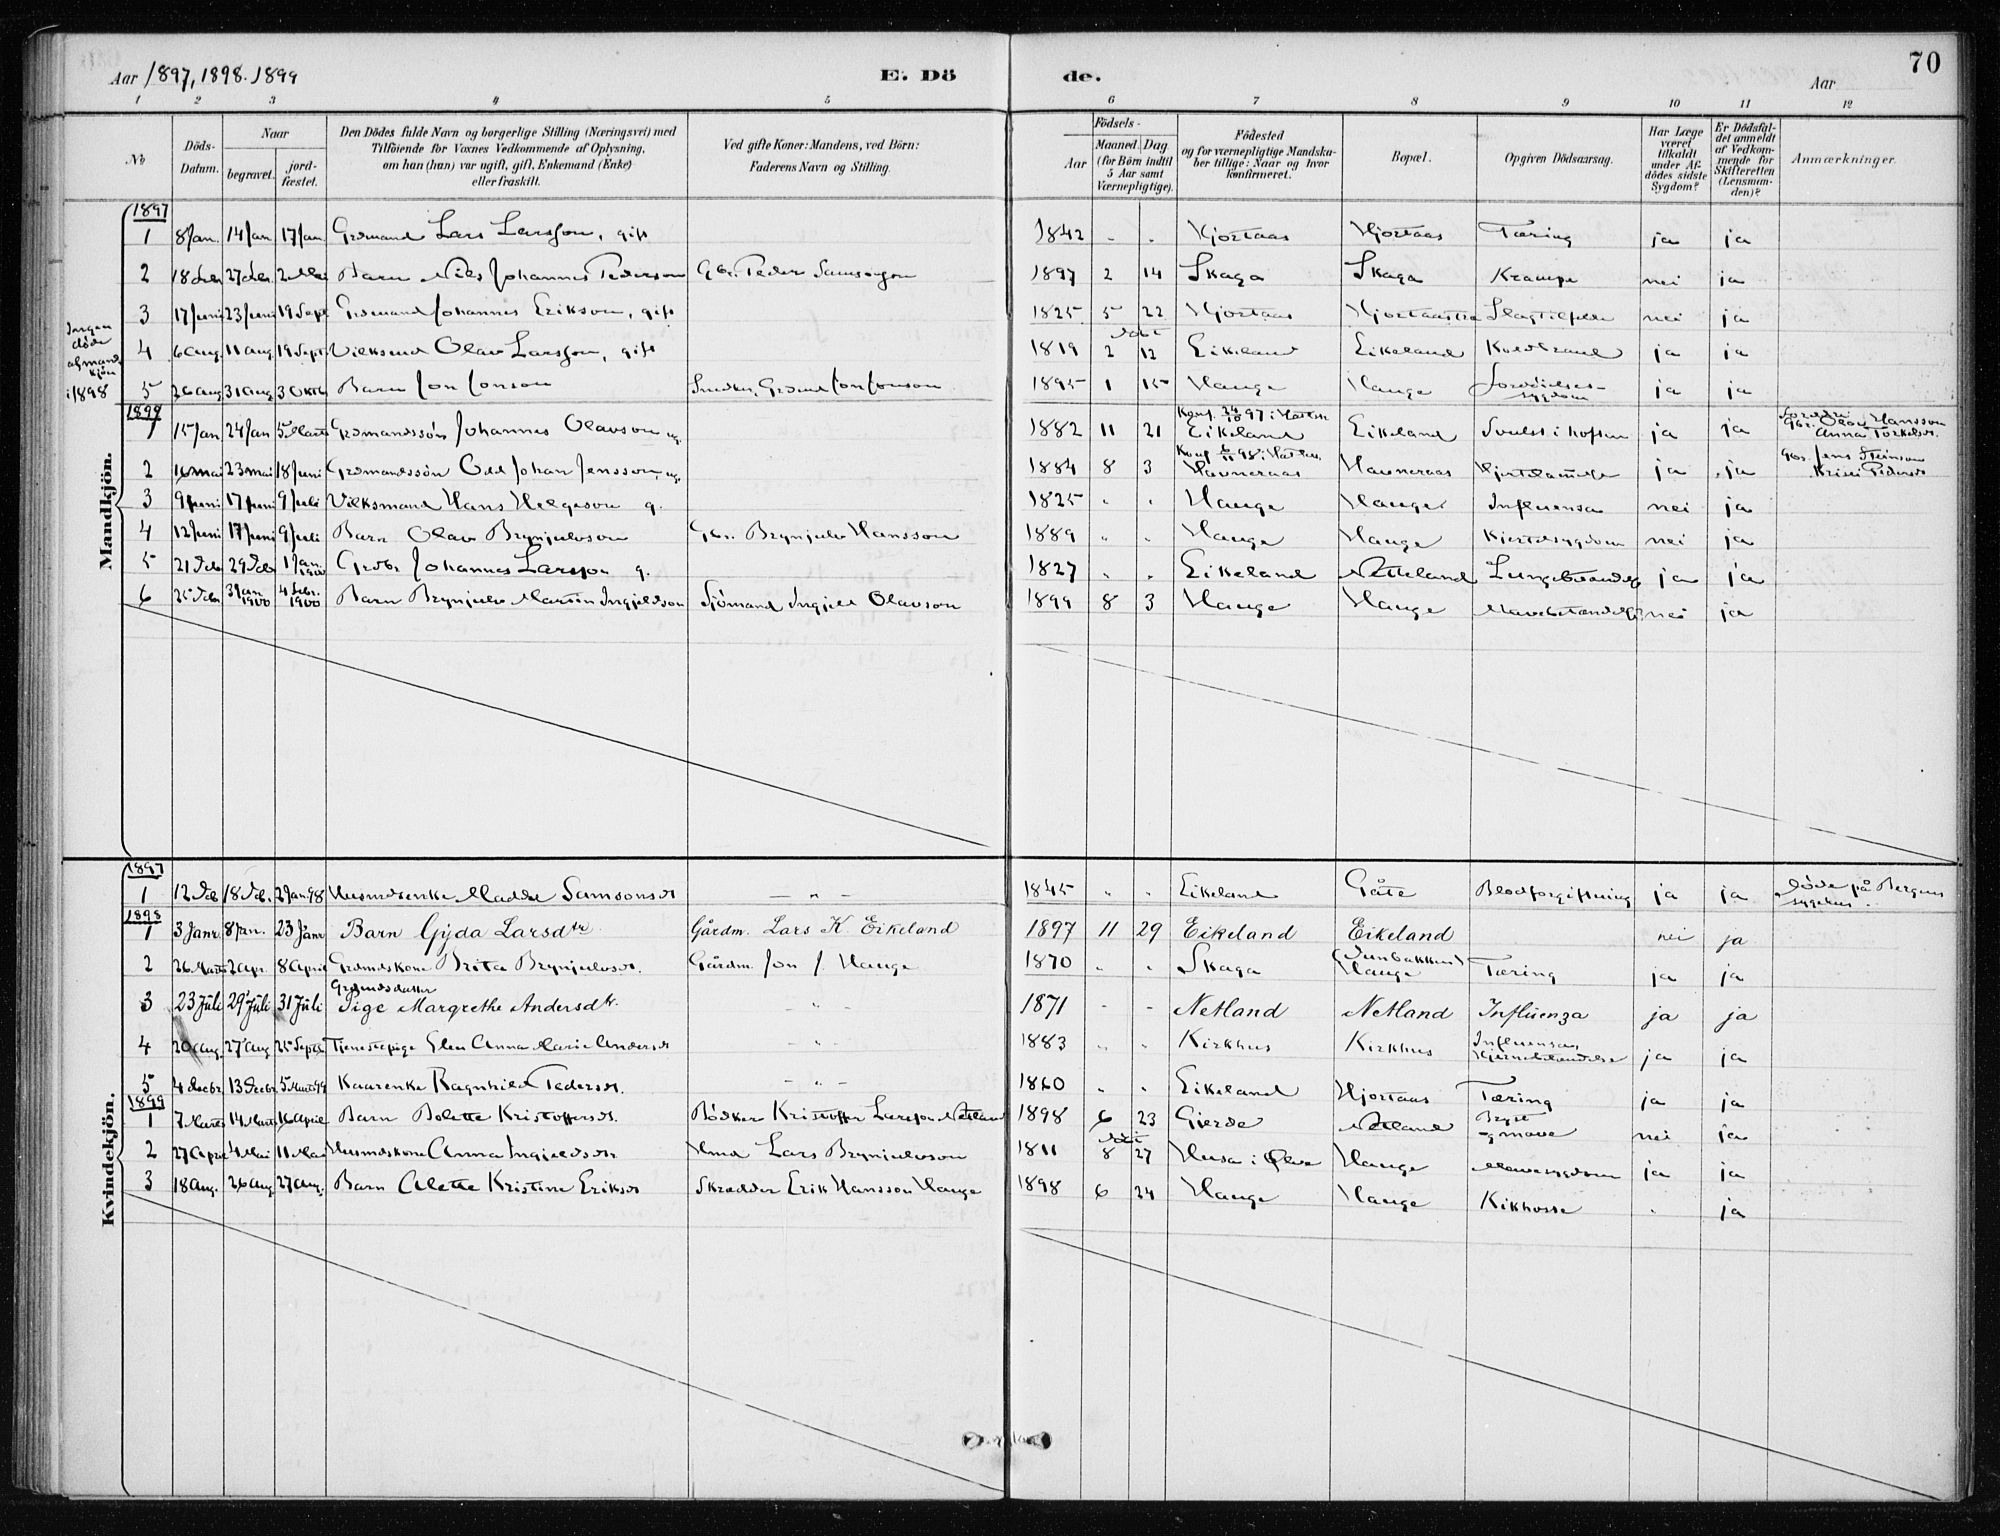 70
Aar 1897, 1898. 1899 E. Dö de. Aar
1 2 3 4 5 6 7 8 9 10 11 12
No
Döds-Datum.
Naar
begravet.
jord-fæstet.
Den Dödes fulde Navn og borgerlige Stilling (Næringsvei) med
Tilföiende for Voxnes Vedkommende af Oplysning,
om han (hun) var ugift, gift, Enkemand (Enke)
eller fraskilt.
Ved gifte Koner: Mandens, ved Börn:
Faderens Navn og Stilling.
Födsels-
Aar
Maaned. Dag
(for Börn indtil
5 Aar samt
Værnepligtige).
Födested
og for værnepligtige Mandska-
ber tillige: Naar og hvor
konfirmeret.
Bopæl.
Opgiven Dödsaarsag.
Har Læge
været
tilkaldt
under Af-
dödes sidste
Sygdom?
Er Dödsfal-
det anmeldt
af Vedkom-
mende for
Skifteretten
(Lensman-
den)?
Anmærkninger.
Mandkjön.
1897
1 8 Jan. 14 Jan 17 Jan. Grdmand Lars Larsson, gift 1842 " " Hjortaas Hjortaas Tæring ja ja
2 18 27 2 Mai Barn Nils Johannes Pederson Gbr. Peder Samsonson 1897 2 14 Skaga Skaga Krampe nei ja
3 17 Juni 23 Juni 19 Sept Grdmand Johannes Erikson, gift 1825 5 22 Hjortaas Slagtilfælde nei ja
Ingen
döde
af mand-
kjön
i 1898
4 6 Aug. 11 Aug. 19 Sept. Vilksmd Olav Larsson, gift 1819 2 12 Eikeland Eikeland Koldbrand ja ja
5 26 Aug 31 Aug 3 Okt Barn Jon Jonson Snedker, Grdmd Jon Jonson 1895 1 15 Hauge Hauge Fordöielses-
sygdom ja ja
1899
1 15 Jan 24 Jan 5 Marts Grdmandssön Johannes Olavson ug. 1882 11 21 Konf. 24/10 97 i
Eikeland Eikeland Svulst i hoften ja ja Foreldre
Gbr. Olav Hansson
Anna Torkelsd.
2 16 mai 23 mai 18 Juni Grdmandssön Odd Johan Jensson, ug. 1884 8 3 Konf 98 i
Havneraas Havneraas ja ja Gbr. Jens
3 9 Juni 17 Juni 9 Juli Vilksmand Hans Helgeson g. 1825 " " Hauge Hauge Influensa nei ja
4 12 Juni 17 Juni 9 Juli Barn Olav Brynjulvson Gbr. Brynjulv Hansson 1889 " " Hauge Hauge Kjertelsygdom nei ja
5 21 Deb 29 Deb 1 Jan. 1900 Grdbr Johannes Larsson g. 1827 " " Eikeland Netteland Lungebetændelse ja ja
6 25 Debr 3 Jan 1900 4 Febr. 1900 Barn Brynjulv Martin Ingjeldson Sjömand Ingjeld Olavson 1899 8 3 Hauge Hauge Mavebetændelse nei ja
Kvindekjön.
1897
1 12 Deb 18 Deb. 2 Jan. 98 Husmdsenke Madde Samsonsd — " — 1845 " " Eikeland Gåte Blodforgiftning ja ja döde på Bergens
sygehus.
1898
1 3 Janr 8 Jan. 23 Janr Barn Gyda Larsdtr Gårdm. Lars K. Eikeland 1897 11 29 Eikeland Eikeland nei ja
2 26 Marts 2 Apr. 8 April Grdmdskone Brita Brynjulvsd. Gårdm. Jon J. Hauge 1870 " " Skaga (Tunbakken)
Hauge Tæring ja ja
3 23 Juli 29 Juli 31 Juli Grdmdsdatter
Pige Margrethe Andersdtr. - " - 1871 - - Netland Netland Influenza ja ja
4 20 Aug. 27 Aug 25 Septb Tjenestepige Elen Anna Marie Andersd - " - 1883 " " Kirkhus Kirkhus Influensa,
Hjernebetændelse ja ja
5 4 Decbr 13 Decbr 5 Mart 99 Kaarenke Ragnhild Pedersd. - " - 1860 " " Eikeland Hjortaas Tæring ja ja
1899
1 7 Marts 14 Marts 16 April Barn Bolette Kristoffersd. Bödker Kristoffer Larsson Netland 1898 6 23 Gjerde Netland Bryst
og mave nei ja
2 27 April 4 Mai 11 Mai Husmdskone Anna Ingjeldsdtr Hmd Lars Brynjulvson 1811 8 27 Husa i Ølve Hauge Mavesygdom ja ja
3 18 Aug. 26 Aug 27 Aug. Barn Alette Kristine Eriksd Skrædder Erik Hansson Hauge 1898 6 24 Hauge Hauge Kikhoste " ja